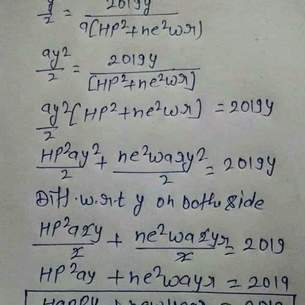 y/2 = 2019y / a[HP²+ne²wr]
ay²/2 = 2019y / [HP²+ne²wr]
ay²/2 [HP²+ne²wr] = 2019y
HP²ay²/2 + ne²wary²/2 = 2019y
Diff.w.r.t y on both side
HP²a2y/2 + ne²wa2yr/2 = 2019
HP²ay + ne²wayr = 2019